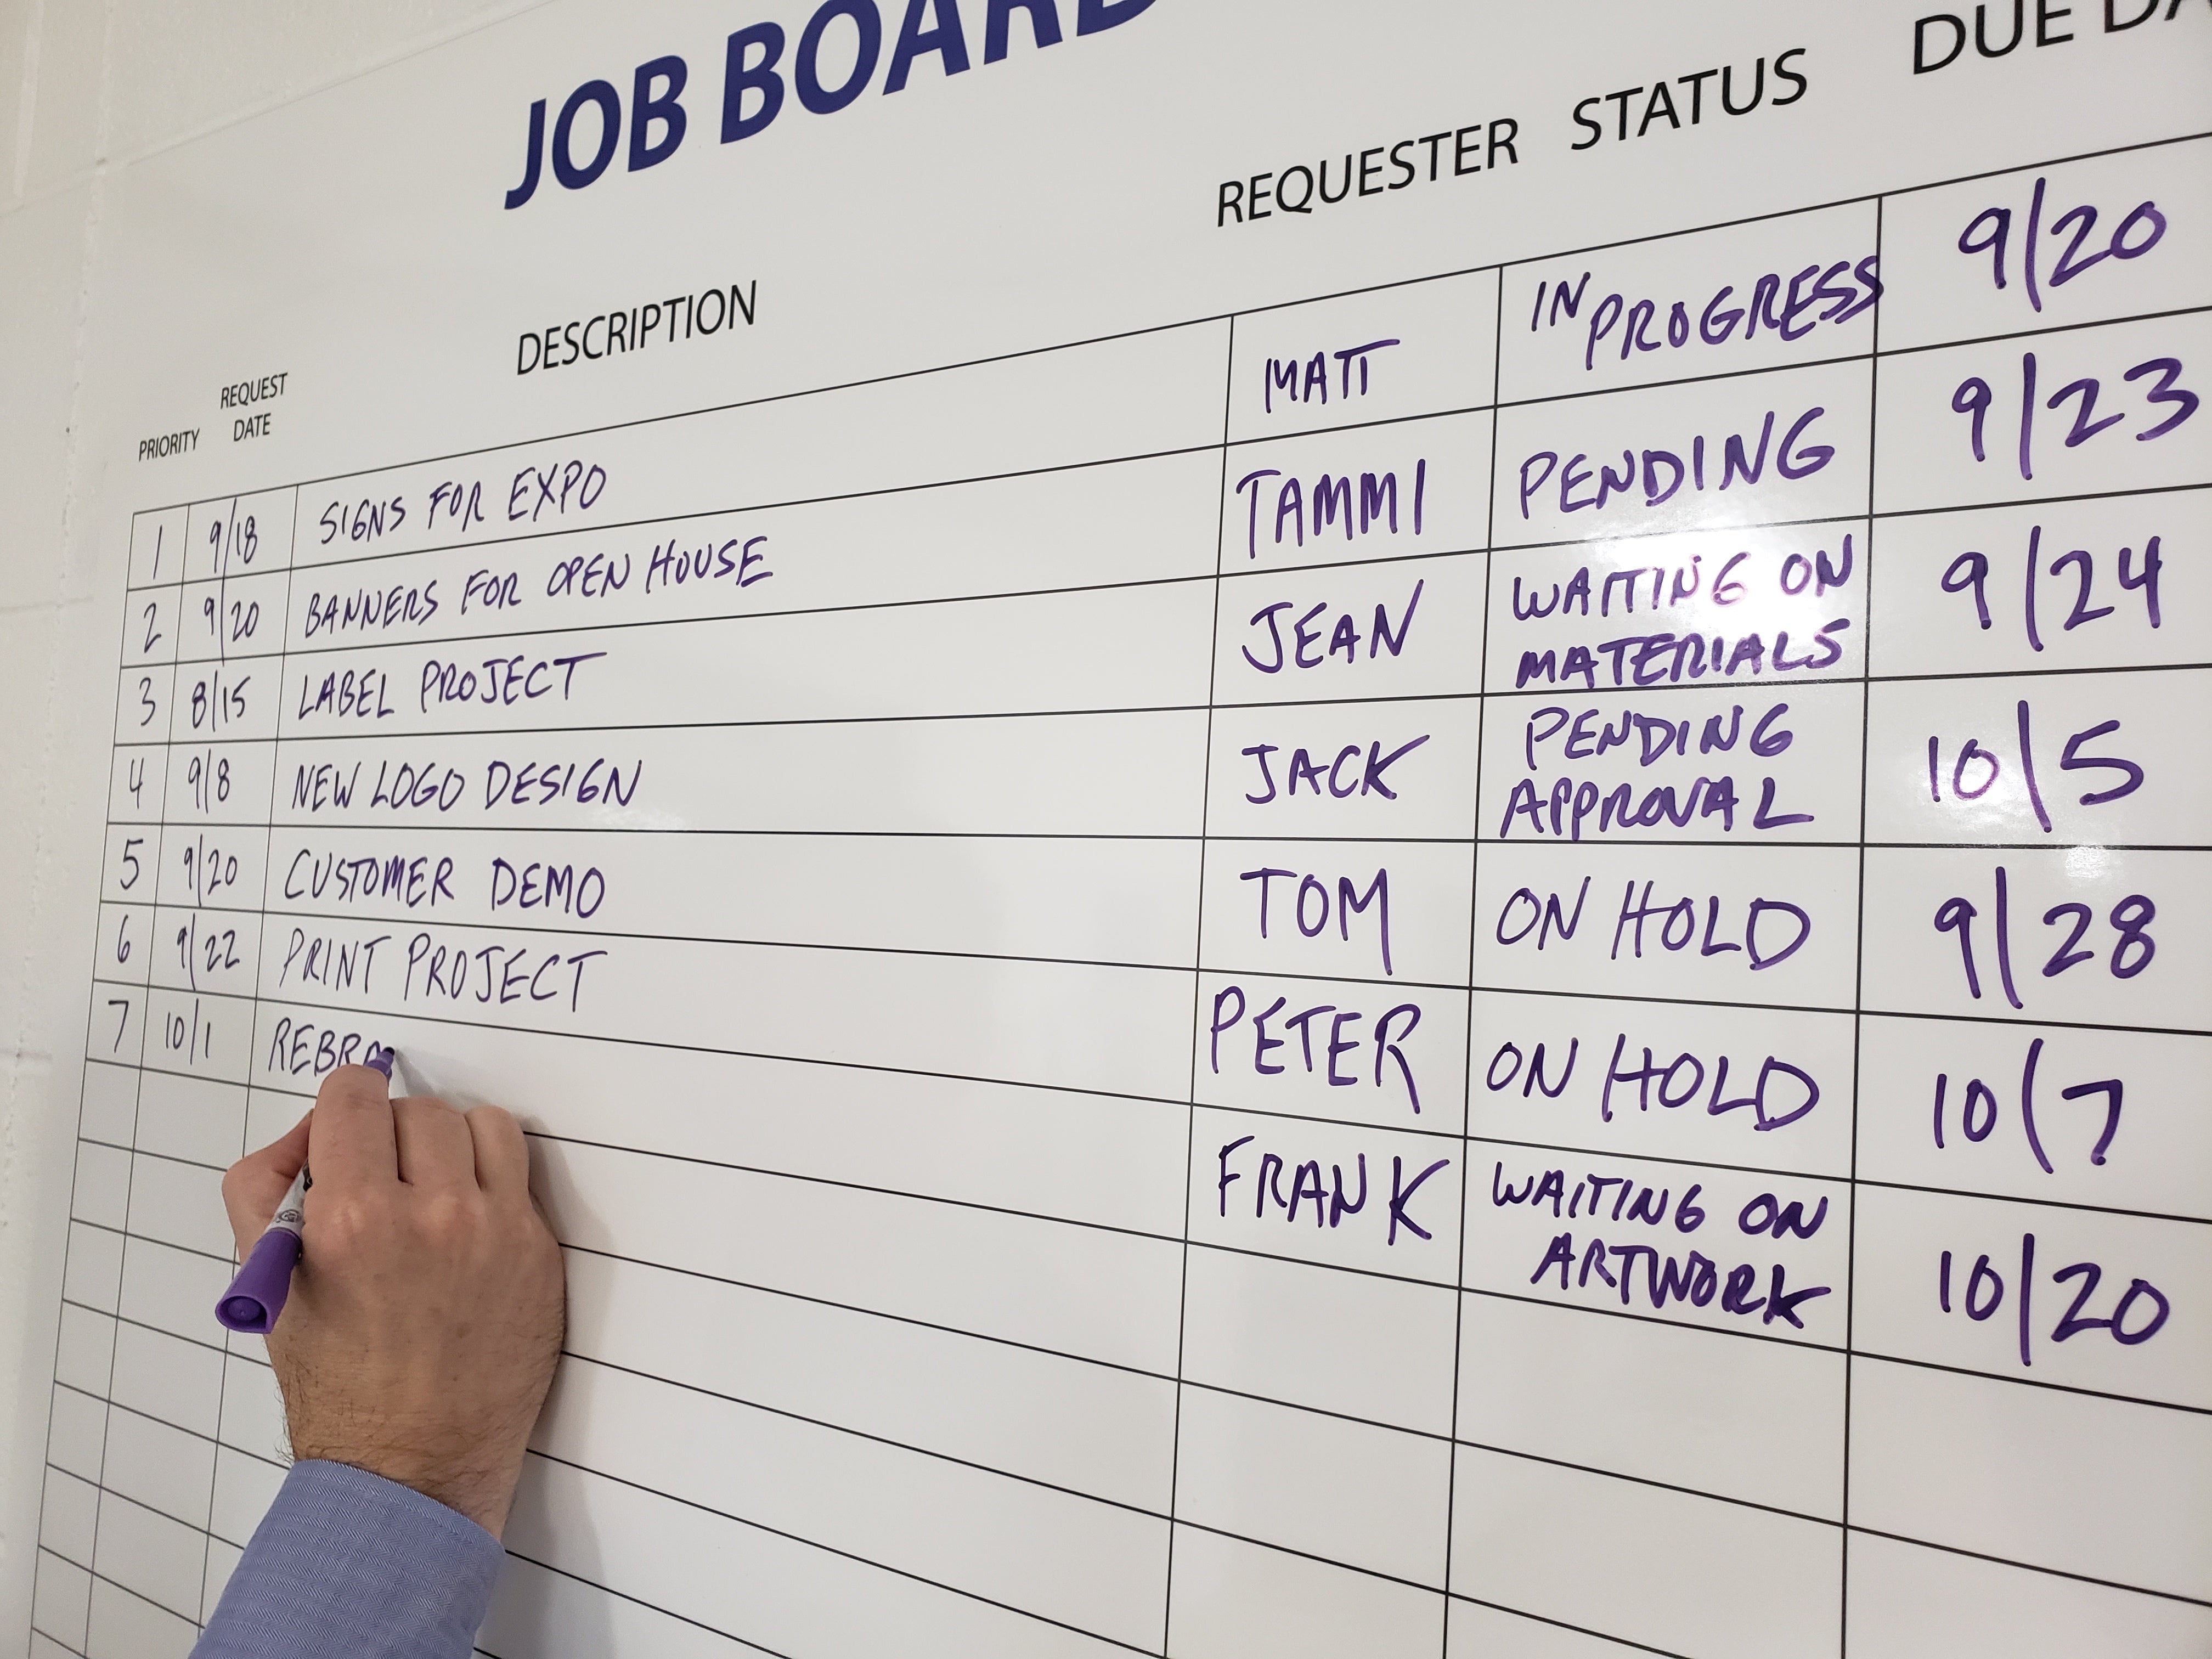 JOB BOARD
PRIORITY REQUEST DATE DESCRIPTION REQUESTER STATUS DUE DA
1 9/18 SIGNS FOR EXPO MATT IN PROGRESS 9/20
2 9/20 BANNERS FOR OPEN HOUSE TAMMI PENDING 9/23
3 8/15 LABEL PROJECT JEAN WAITING ON MATERIALS 9/24
4 9/8 NEW LOGO DESIGN JACK PENDING APPROVAL 10/5
5 9/20 CUSTOMER DEMO TOM ON HOLD 9/28
6 9/22 PRINT PROJECT PETER ON HOLD 10/7
7 10/1 REBRA FRANK WAITING ON ARTWORK 10/20